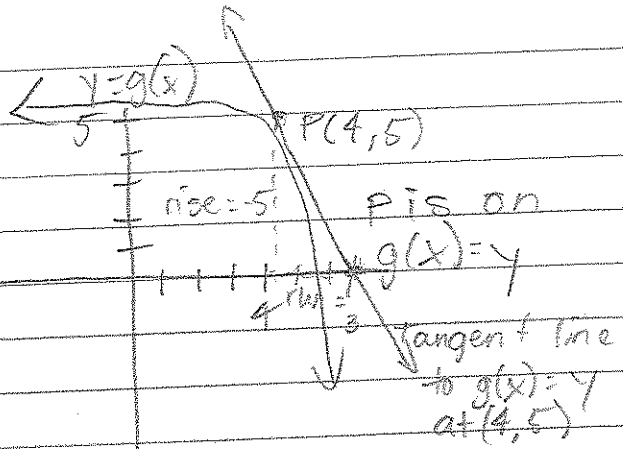 y=g(x)
5
P(4,5)
rise=-5
P is on
g(x)=y
4
run=
3
tangent line
to g(x)=y
at (4,5)